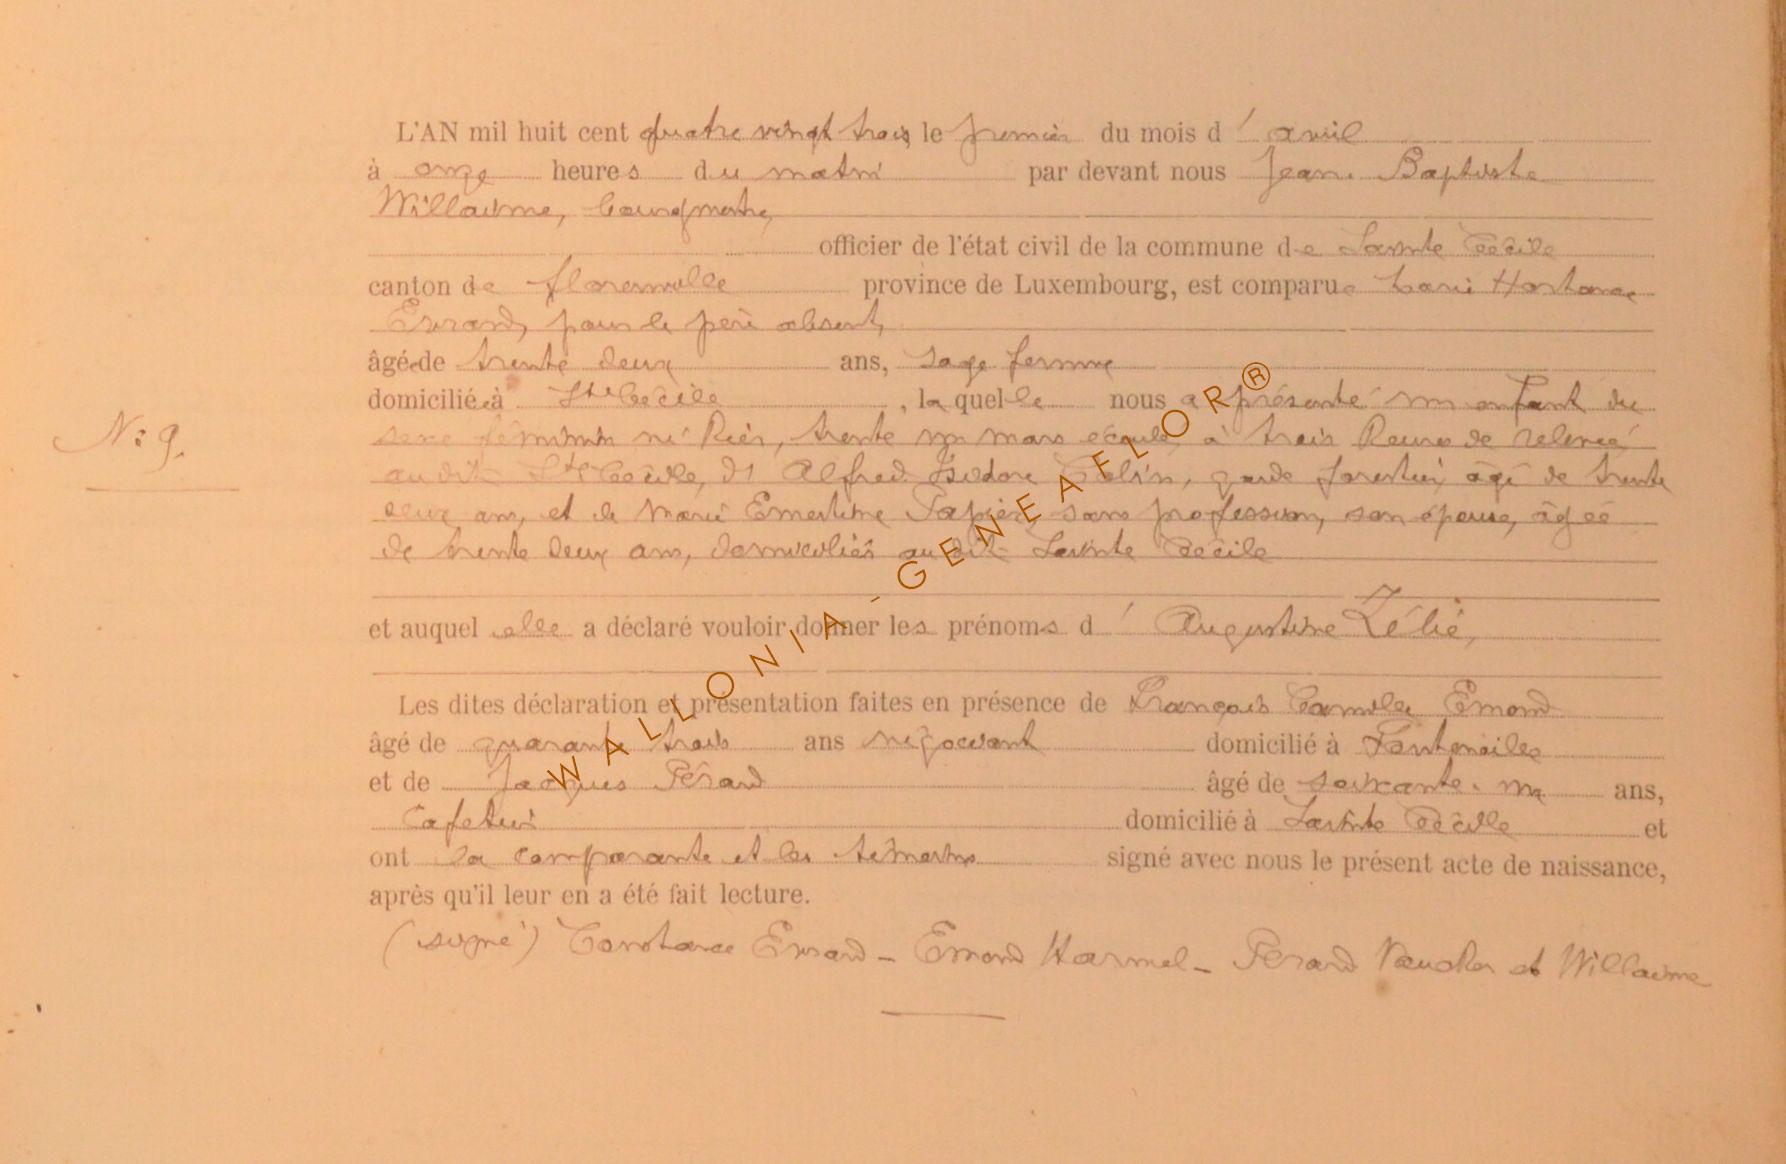 L'AN mil huit cent quatre vingt trois, le premier du mois d' avril
à onze heures du matin par devant nous Jean Baptiste
Willaime, bourgmestre,
officier de l'état civil de la commune de Sainte Cécile
canton de florenville province de Luxembourg, est comparue Marie Hortance
Evrard, pour le père absent,
âgé-de trente deux ans, sage femme
domiciliée à Ste Cécile, la quelle nous a présenté un enfant du
sexe féminin né hier, trente un mars écoulé, à trois heures de relevée
au dit Ste Cécile, d' Alfred Isidore, garde forestier, âgé de trente
deux ans, et de Marie Ernestine Papier, sans profession, son épouse, âgée
de trente deux ans, domiciliés au dit Sainte Cécile
et auquel elle a déclaré vouloir donner les prénoms d' Augustine Zélie,
Les dites déclaration et présentation faites en présence de François Camille Emond
âgé de quarante trois ans négociant domicilié à Fontenoilles
et de Jacques Pérard âgé de soixante un ans,
Cafetier domicilié à Sainte Cécille et
ont la comparante et les témoins signé avec nous le présent acte de naissance,
après qu'il leur en a été fait lecture.
(signé) Constance Evrard - Emond Harmel - Pérard et Willaime
N: 9.
WALLONIA-GENEAFLOR®